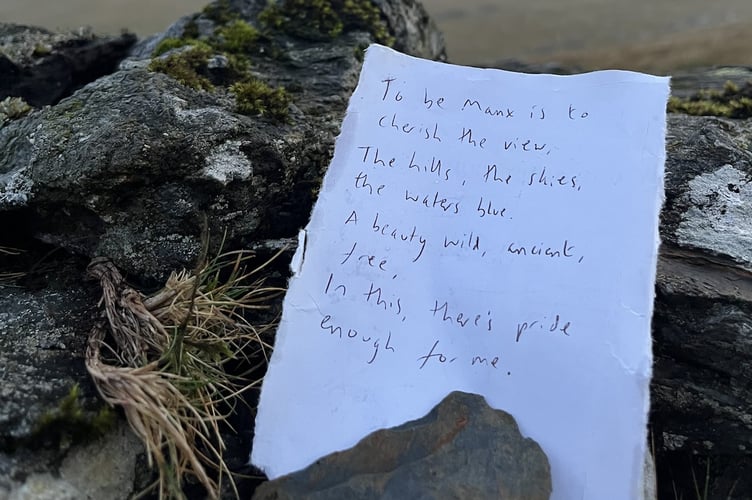 To be Manx is to
cherish the view,
The hills, the skies,
the waters blue.
A beauty wild, ancient,
free,
In this, there's pride
enough for me.